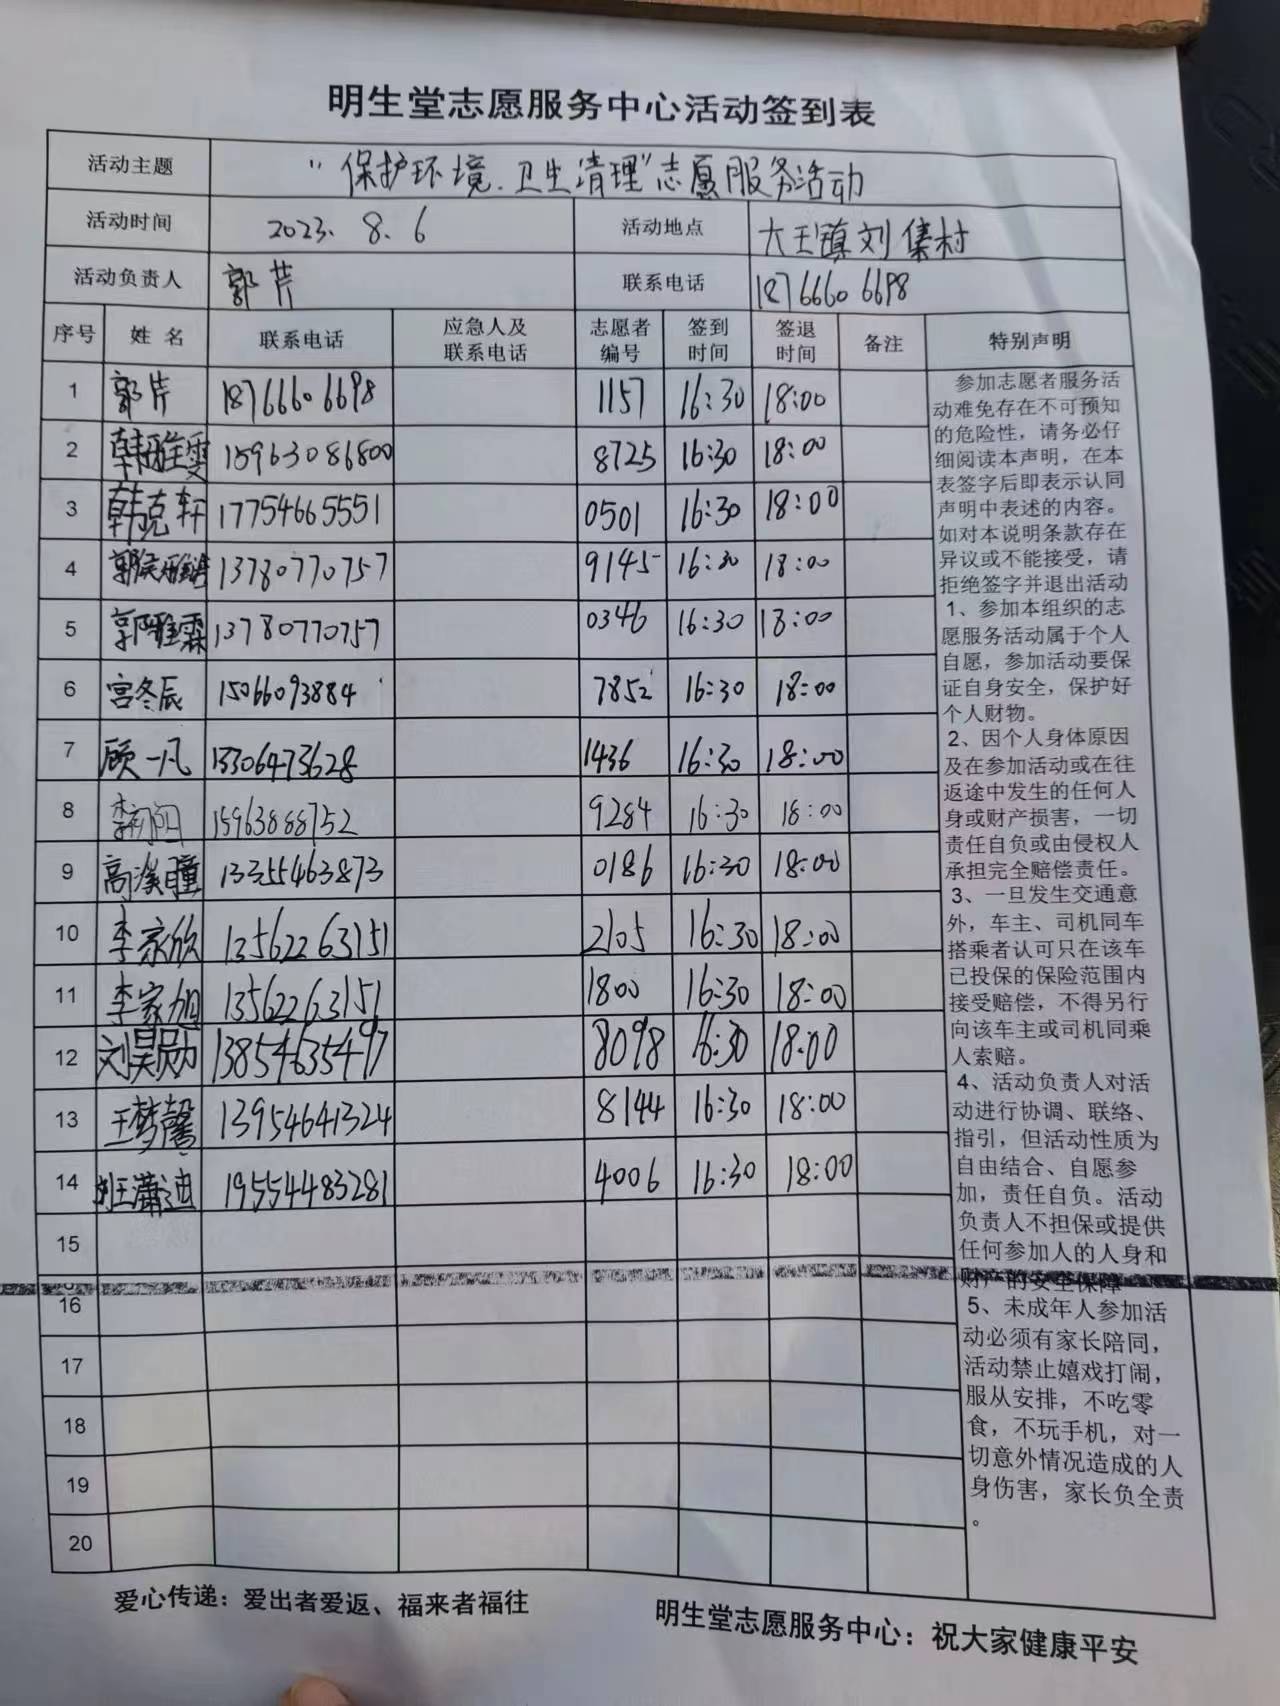 明生堂志愿服务中心活动签到表
活动主题 “保护环境、卫生清理”志愿服务活动
活动时间 2023.8.6 活动地点 大王镇刘集村
活动负责人 郭芹 联系电话 18766606698
序号 姓名 联系电话 应急人及联系电话 志愿者编号 签到时间 签退时间 备注 特别声明
1 郭芹 18766606698 1157 16:30 18:00
2 韩雅雯 15963086800 8725 16:30 18:00
3 韩克轩 17754665551 0501 16:30 18:00
4 13780770757 9145 16:30 18:00
5 郭雅霖 13780770757 0346 16:30 18:00
6 宫冬辰 15066093884 7852 16:30 18:00
7 顾一凡 13306473628 1436 16:30 18:00
8 李初阳 15963888752 9284 16:30 18:00
9 高溪曈 13355463873 0186 16:30 18:00
10 李家欣 13562263151 2105 16:30 18:00
11 李家旭 13562263151 1800 16:30 18:00
12 刘昊勋 13854635497 8098 16:30 18:00
13 王梦馨 13954641324 8144 16:30 18:00
14 潇迪 19554483281 4006 16:30 18:00
15
16
17
18
19
20
参加志愿者服务活
动难免存在不可预知
的危险性，请务必仔
细阅读本声明，在本
表签字后即表示认同
声明中表述的内容。
如对本说明条款存在
异议或不能接受，请
拒绝签字并退出活动
1、参加本组织的志
愿服务活动属于个人
自愿，参加活动要保
证自身安全，保护好
个人财物。
2、因个人身体原因
及在参加活动或在往
返途中发生的任何人
身或财产损害，一切
责任自负或由侵权人
承担完全赔偿责任。
3、一旦发生交通意
外，车主、司机同车
搭乘者认可只在该车
已投保的保险范围内
接受赔偿，不得另行
向该车主或司机同乘
人索赔。
4、活动负责人对活
动进行协调、联络、
指引，但活动性质为
自由结合、自愿参
加，责任自负。活动
负责人不担保或提供
任何参加人的人身和
财产的安全保障
5、未成年人参加活
动必须有家长陪同，
活动禁止嬉戏打闹，
服从安排，不吃零
食，不玩手机，对一
切意外情况造成的人
身伤害，家长负全责
。
爱心传递：爱出者爱返、福来者福往
明生堂志愿服务中心：祝大家健康平安